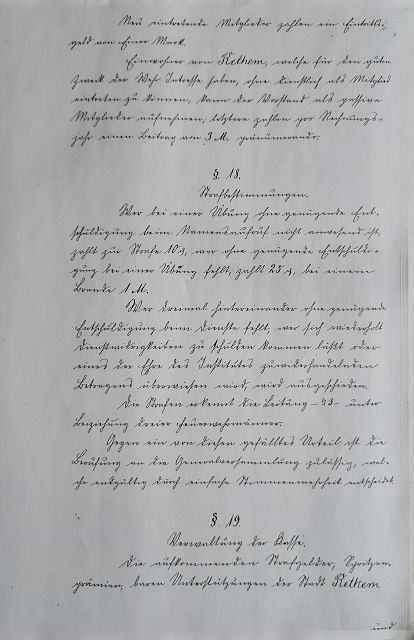 Neu eintretende Mitglieder zahlen ein Eintritts-
geld von Einer Mark.
Einwohner von Rethem, welche für den guten
Zweck der Wehr Interesse haben, ohne dienstlich als Mitglied
eintreten zu können, kann der Vorstand als passive
Mitglieder aufnehmen; letztere zahlen pro Rechnungs-
jahr einen Beitrag von 3 M. pränumerando.
§. 18.
Strafbestimmungen.
Wer bei einer Übung ohne genügende Ent-
schuldigung beim Namensaufruf nicht anwesend ist,
zahlt zur Strafe 10 ₰, wer ohne genügende Entschuldi-
gung bei einer Übung fehlt, zahlt 25 ₰, bei einem
Brande 1 M.
Wer dreimal hintereinander ohne genügende
Entschuldigung beim Dienste fehlt, wer sich wiederholt
Dienstwidrigkeiten zu schulden kommen läßt oder
eines der Ehre des Institutes zuwiderhandelnden
Betragens überwiesen wird, wird ausgeschieden.
Die Strafen erkennt die Leitung – § 3 – unter
Beiziehung dreier Feuerwehrmänner.
Gegen ein von diesen gefälltes Urteil ist die
Berufung an die Generalversammlung zulässig, wel-
che endgültig durch einfache Stimmenmehrheit entscheidet.
§ 19.
Verwaltung der Kasse.
Die aufkommenden Strafgelder, Spritzen-
prämien, baren Unterstützungen der Stadt Rethem
und